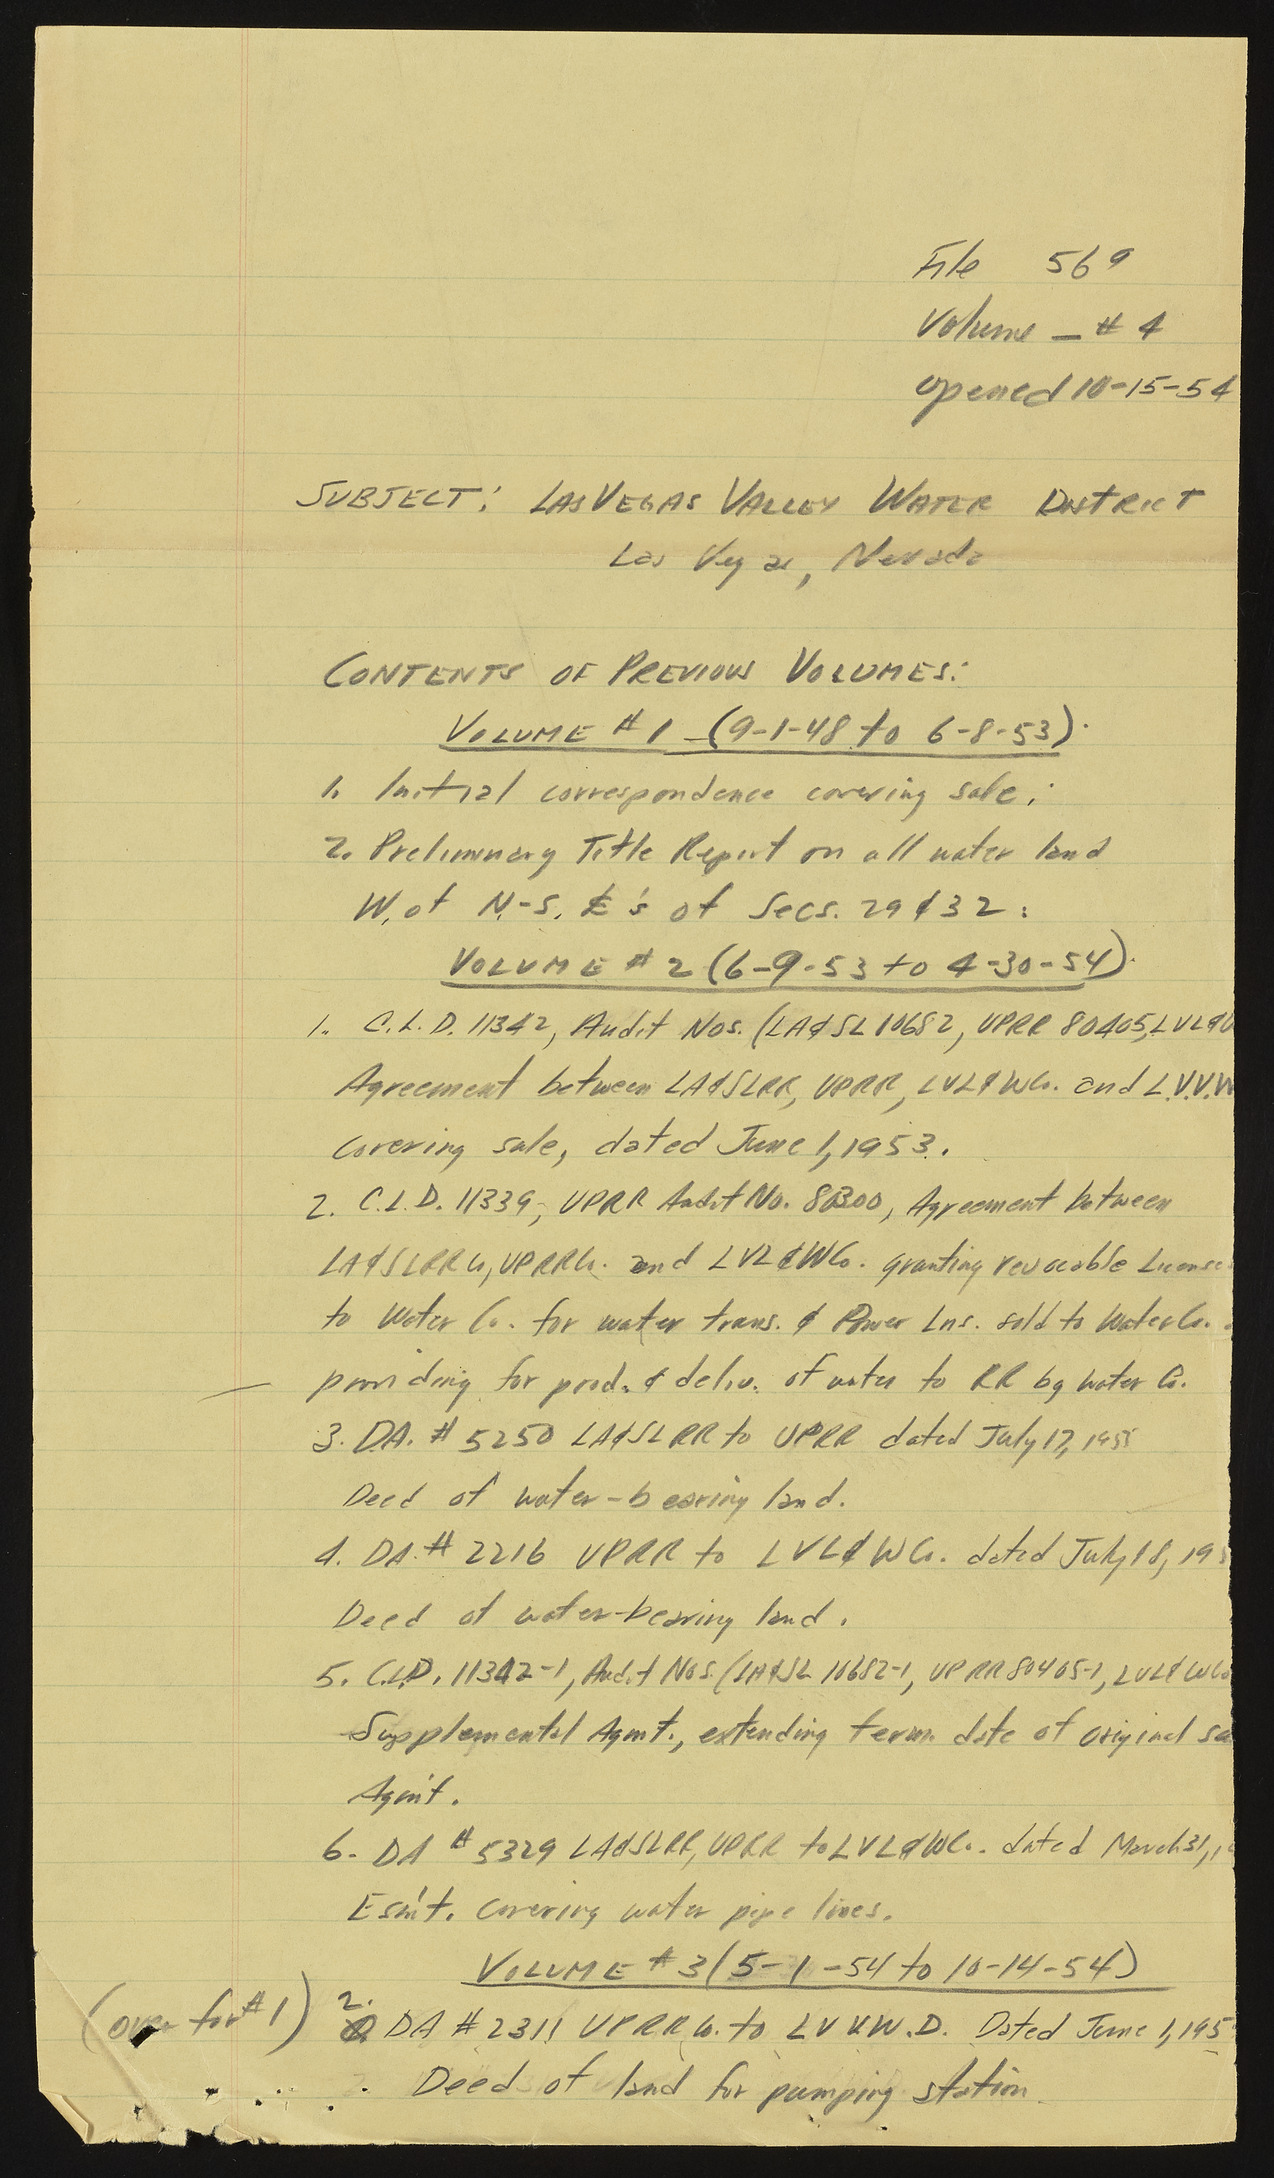 File 569
Volume - # 4
opened 10-15-54
SUBJECT: LAS VEGAS VALLEY WATER DISTRICT
Las Vegas, Nevada
CONTENTS OF PREVIOUS VOLUMES:
VOLUME # 1 - (9-1-48 to 6-8-53).
1. Initial correspondence covering sale;
2. Preliminary Title Report on all water land
W. of N-S. ℄'s of Secs. 29 & 32:
VOLUME # 2 (6-9-53 to 4-30-54).
1. C.L.D. 11342, Audit Nos. (LA&SL 10682, UPRR 80405, LVL&W
Agreement between LA&SLRR, UPRR, LVL&WCo. and L.V.V.W
covering sale, dated June 1, 1953.
2. C.L.D. 11339, UPRR Audit No. 80300, Agreement between
LA&SLRRCo, UPRRCo. and LVL&WCo. granting revocable License
to Water Co. for water trans. & Power Lns. sold to Water Co.
providing for prod. & deliv. of water to RR by water Co.
3. DA. # 5250 LA&SLRR to UPRR dated July 17,
Deed of water-bearing land.
4. DA. # 2216 UPRR to LVL&WCo. dated July 18, 19
Deed of water-bearing land.
5. C.L.D. 11342-1, Audit Nos. (LA&SL 10682-1, UPRR 80405-1, LVL&WCo
Supplemental Agmt., extending term. date of original sa
Agm't.
6. DA # 5329 LA&SLRR, UPRR to LVL&WCo. dated March 31, 1
Esm't. covering water pipe lines.
VOLUME # 3 (5-1-54 to 10-14-54)
(over for #1) 2. DA # 2311 UPRRCo. to LVVW.D. Dated June 1, 195
Deed of land for pumping station